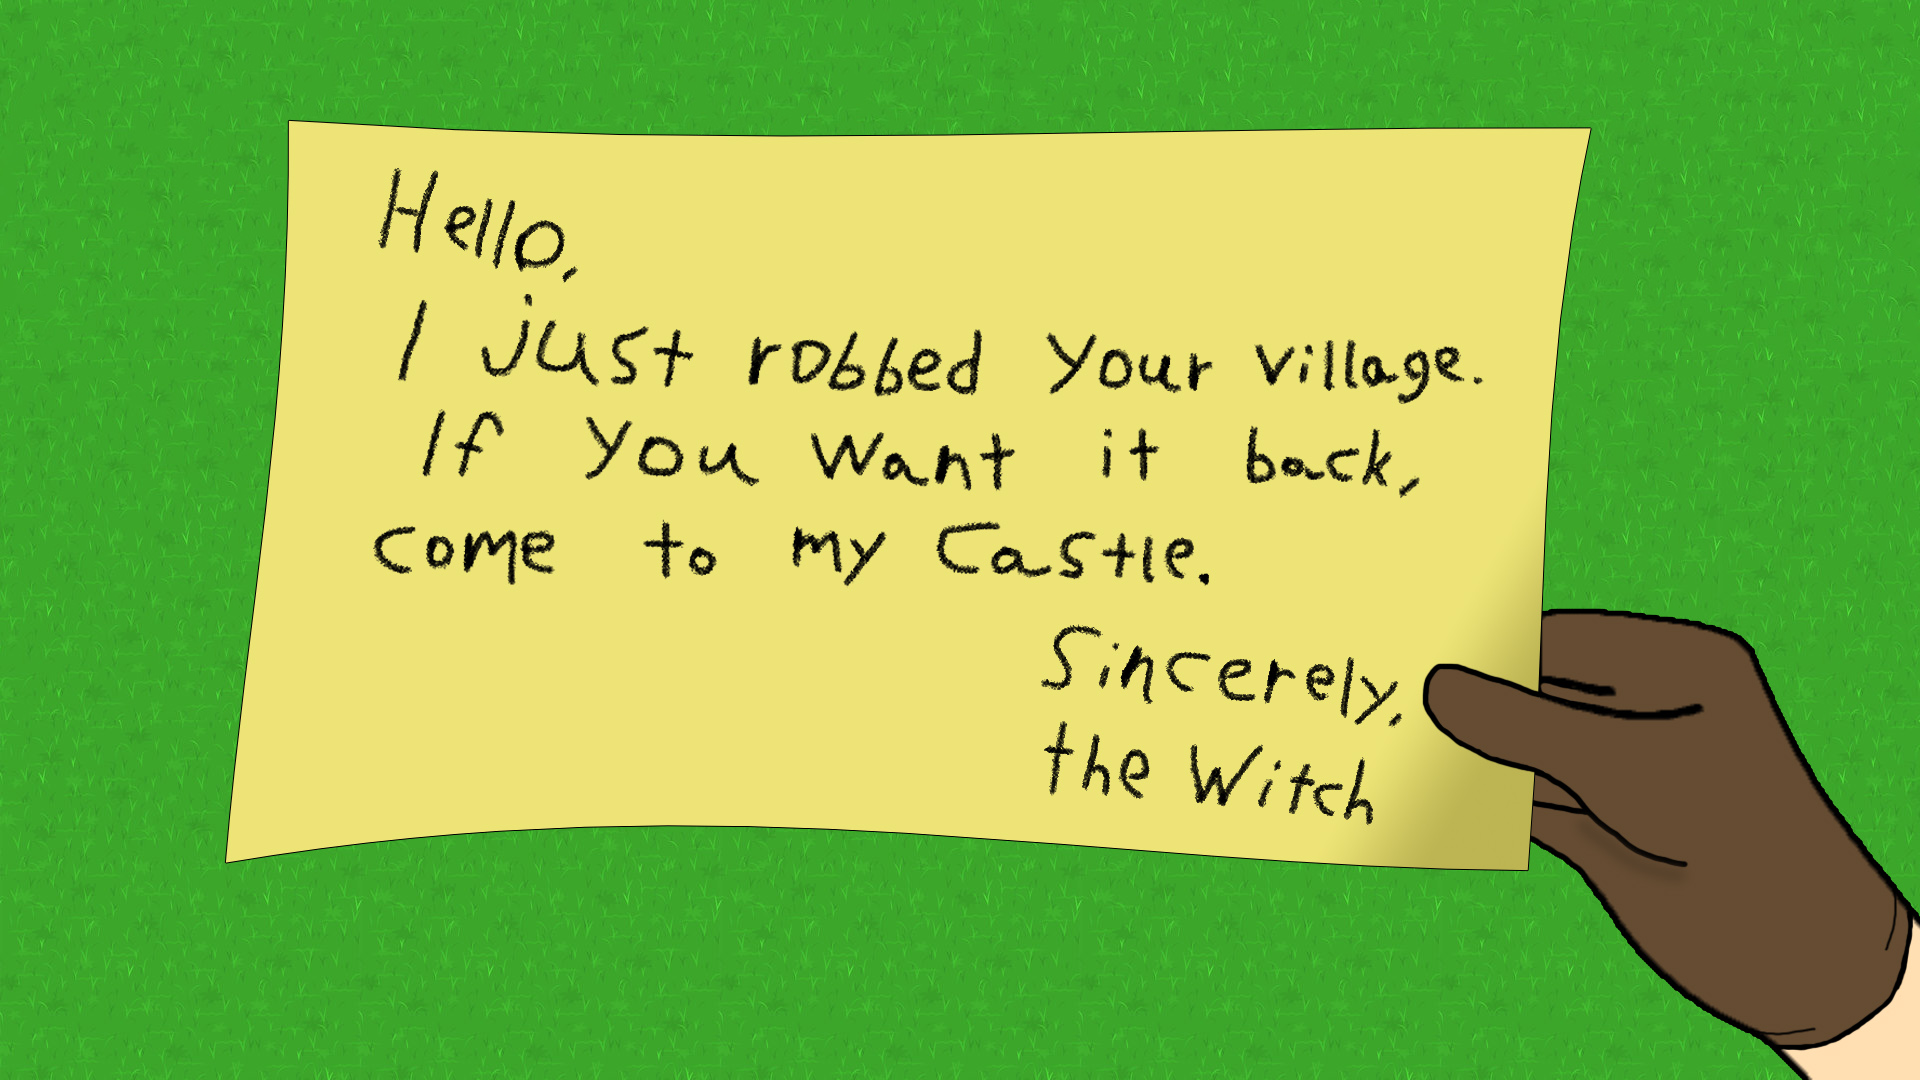 Hello,
I just robbed your village.
If you want it back,
come to my castle.
Sincerely,
the Witch